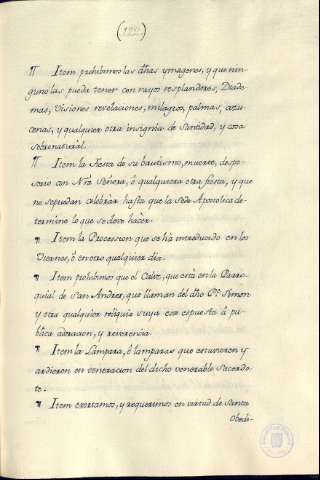 ¶ Item prohibimos las dħas ymagenes, y que nin-
guno las pueda tener con rayos resplandores, Diade-
mas, Visiones revelaciones, milagros, palmas, azu-
cenas, y qualquier otra insignia de Santidad, y cosa
sobrenatural.
¶ Item la fiesta de su bautismo, muerte, despo-
sorio con Nrâ Señora, ó qualquiera otra fiesta, y que
no se puedan celebrar hasta que la Sede Apostolica de-
termine lo que se deve hacer.
¶ Item la Procession que se hà introducido en los
Viernes, ò en otro qualquier dia.
¶ Item prohibimos que el Caliz, que està en la Parro-
quial de San Andres, que llaman del dħo Simon
y otra qualquier reliquia suya este expuesta à pu-
blica adoracion, y reverencia.
¶ Item la Lampara, ò lamparas que estuvieren y
ardieren en veneracion del dicho venerable Sacerdo-
te.
¶ Item exortamos, y requerimos en virtud de Santa
Obedi-